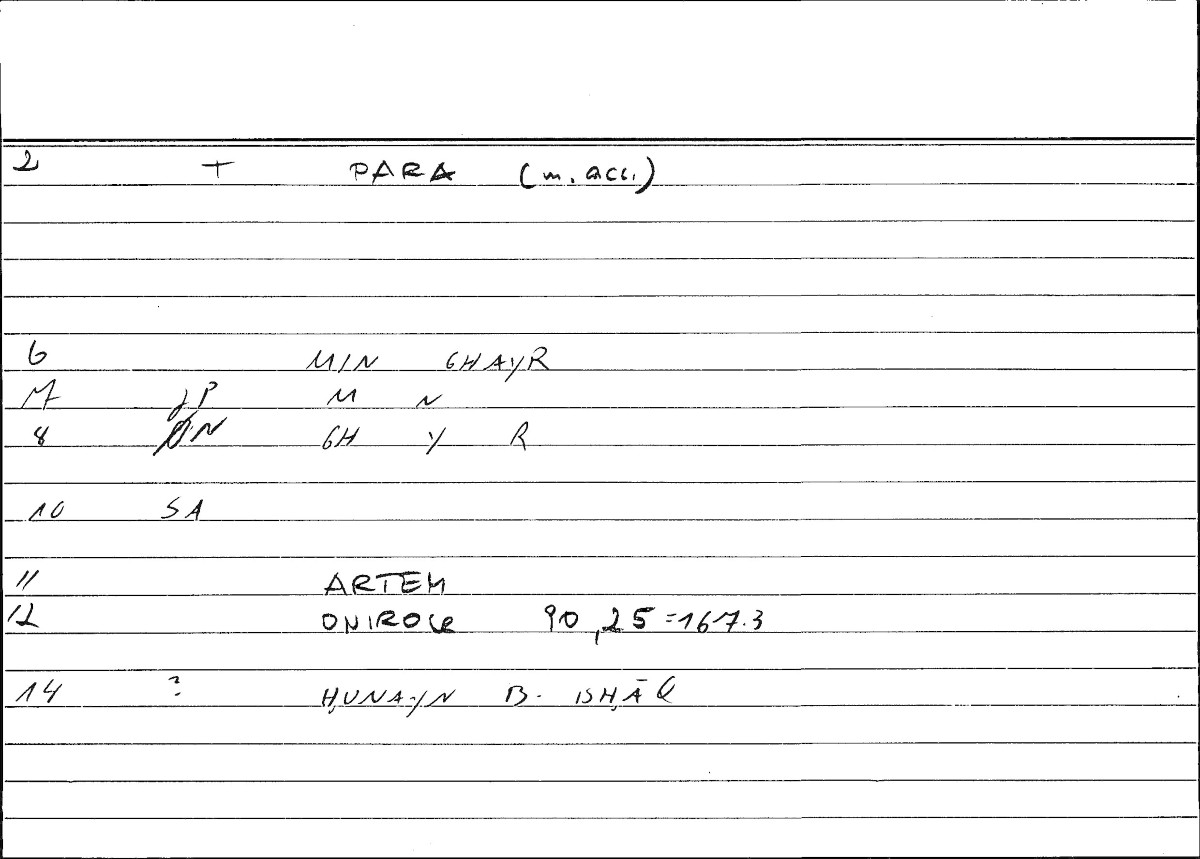 2 + PARA (m. acc.)
6 MIN GHAYR
7 JP M N
8 N GH Y R
10 SA
11 ARTEM
12 ONIROCR 90,25=167.3
14 ? ḤUNAYN B. ISḤĀQ